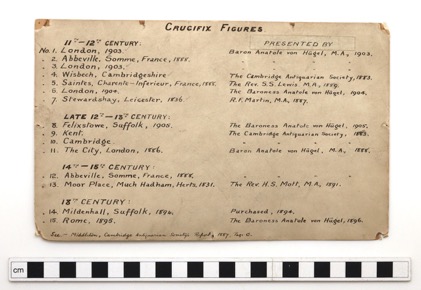 CRUCIFIX FIGURES
11TH–12TH CENTURY: PRESENTED BY
No. 1. London, 1903. Baron Anatole von Hügel, M.A., 1903.
" 2. Abbeville, Somme, France, 1888. " " "
" 3. London, 1903. " " "
" 4. Wisbech, Cambridgeshire The Cambridge Antiquarian Society, 1883.
" 5. Saintes, Charente-Inferieur, France, The Rev. S.S. Lewis M.A.,
" 6. London, 1904. The Baroness Anatole von Hügel, 1904.
" 7. Stewardshay, Leicester, 1836. R.F. Martin, M.A., 1887.
LATE 12TH–13TH CENTURY:
" 8. Felixstowe, Suffolk, 1905. The Baroness Anatole von Hügel, 1905.
" 9. Kent. The Cambridge Antiquarian Society, 1883.
" 10. Cambridge. " " "
" 11. The City, London, 1886. Baron Anatole von Hügel, M.A., 1888.
CENTURY:
" 12. Abbeville, Somme, France, 1888. " " "
" 13. Moor Place, Much Hadham, Herts, 1831. The Rev. H.S. Mott, M.A., 1891.
CENTURY:
" 14. Mildenhall, Suffolk, 1894. Purchased, 1894.
" 15. Rome, 1895. The Baroness Anatole von Hügel, 1896.
Middleton, Cambridge Antiquarian Society 1887.
cm